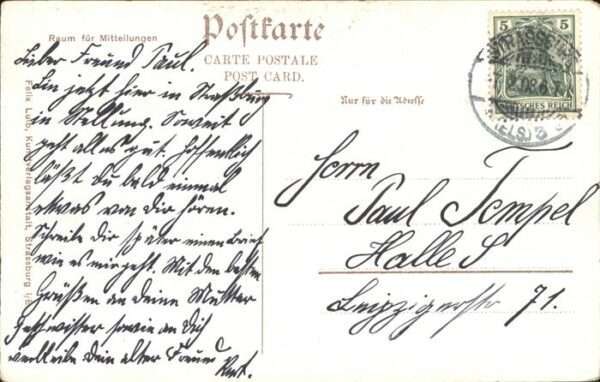 Raum für Mitteilungen
Postkarte
CARTE POSTALE
POST CARD.
Nur für die Adresse
5 5
STRASSBURG
DEUTSCHES REICH
(ELS.) 3
Felix Luib, Kunstverlagsanstalt, Strassburg i/E.
Lieber Freund Paul.
Bin jetzt hier in Straßburg
in Stellung. Soweit
geht alles gut. Hoffentlich
läßt du bald einmal
etwas von dir hören.
Schreibe dir später einen Brief
wie es mir geht. Mit den besten
Grüßen an deine Mutter
Geschwister sowie an dich
verbleibe dein alter Freund
Herrn
Paul Tempel
Halle S
Leipzigerstr 71.